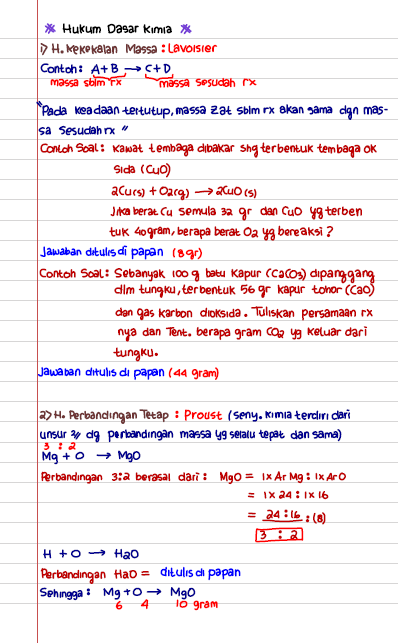 ※ Hukum Dasar Kimia ※
1) H. Kekekalan Massa : Lavoisier
Contoh : A + B → C + D
massa sblm rx massa sesudah rx
"Pada keadaan tertutup, massa zat sblm rx akan sama dgn mas-
sa sesudah rx "
Contoh Soal : Kawat tembaga dibakar shg terbentuk tembaga ok
sida (CuO)
2Cu(s) + O2(g) → 2CuO(s)
Jika berat Cu semula 32 gr dan CuO yg terben
tuk 40 gram, berapa berat O2 yg bereaksi ?
Jawaban ditulis di papan (8 gr)
Contoh Soal : Sebanyak 100 g batu kapur (CaCO3) dipanggang
dlm tungku, terbentuk 56 gr kapur tohor (CaO)
dan gas karbon dioksida. Tuliskan persamaan rx
nya dan Tent. berapa gram CO2 yg keluar dari
tungku.
Jawaban ditulis di papan (44 gram)
2) H. Perbandingan Tetap : Proust (seny. kimia terdiri dari
unsur 2// dg perbandingan massa yg selalu tepat dan sama)
3 : 2
Mg + O → MgO
Perbandingan 3:2 berasal dari : MgO = 1 x Ar Mg : 1 x Ar O
= 1 x 24 : 1 x 16
= 24 : 16 : (8)
3 : 2
H + O → H2O
Perbandingan H2O = ditulis di papan
Sehingga : Mg + O → MgO
6 4 10 gram